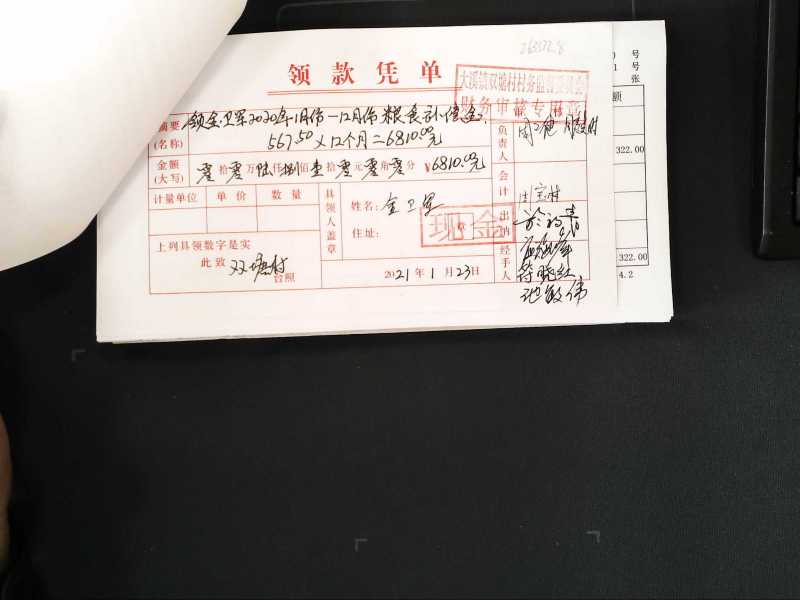 263572.8
领款凭单
大溪镇双塘村村务监督委员会
财务审核专用章
摘要
(名称)
领金卫军2020年1月份-12月份粮食补偿金
567.50×12个月=6810.00元
负责人
金额
(大写)
零拾零万陆仟捌佰壹拾零元零角零分 ¥6810.00元
计量单位 单价 数量
具领人盖章
姓名: 金卫军
住址:
现金
会计
出纳
经手人
上列具领数字是实
此致 双塘村
台照
2021年1月23日
号
1 号
张
额
322.00
322.00
4.2